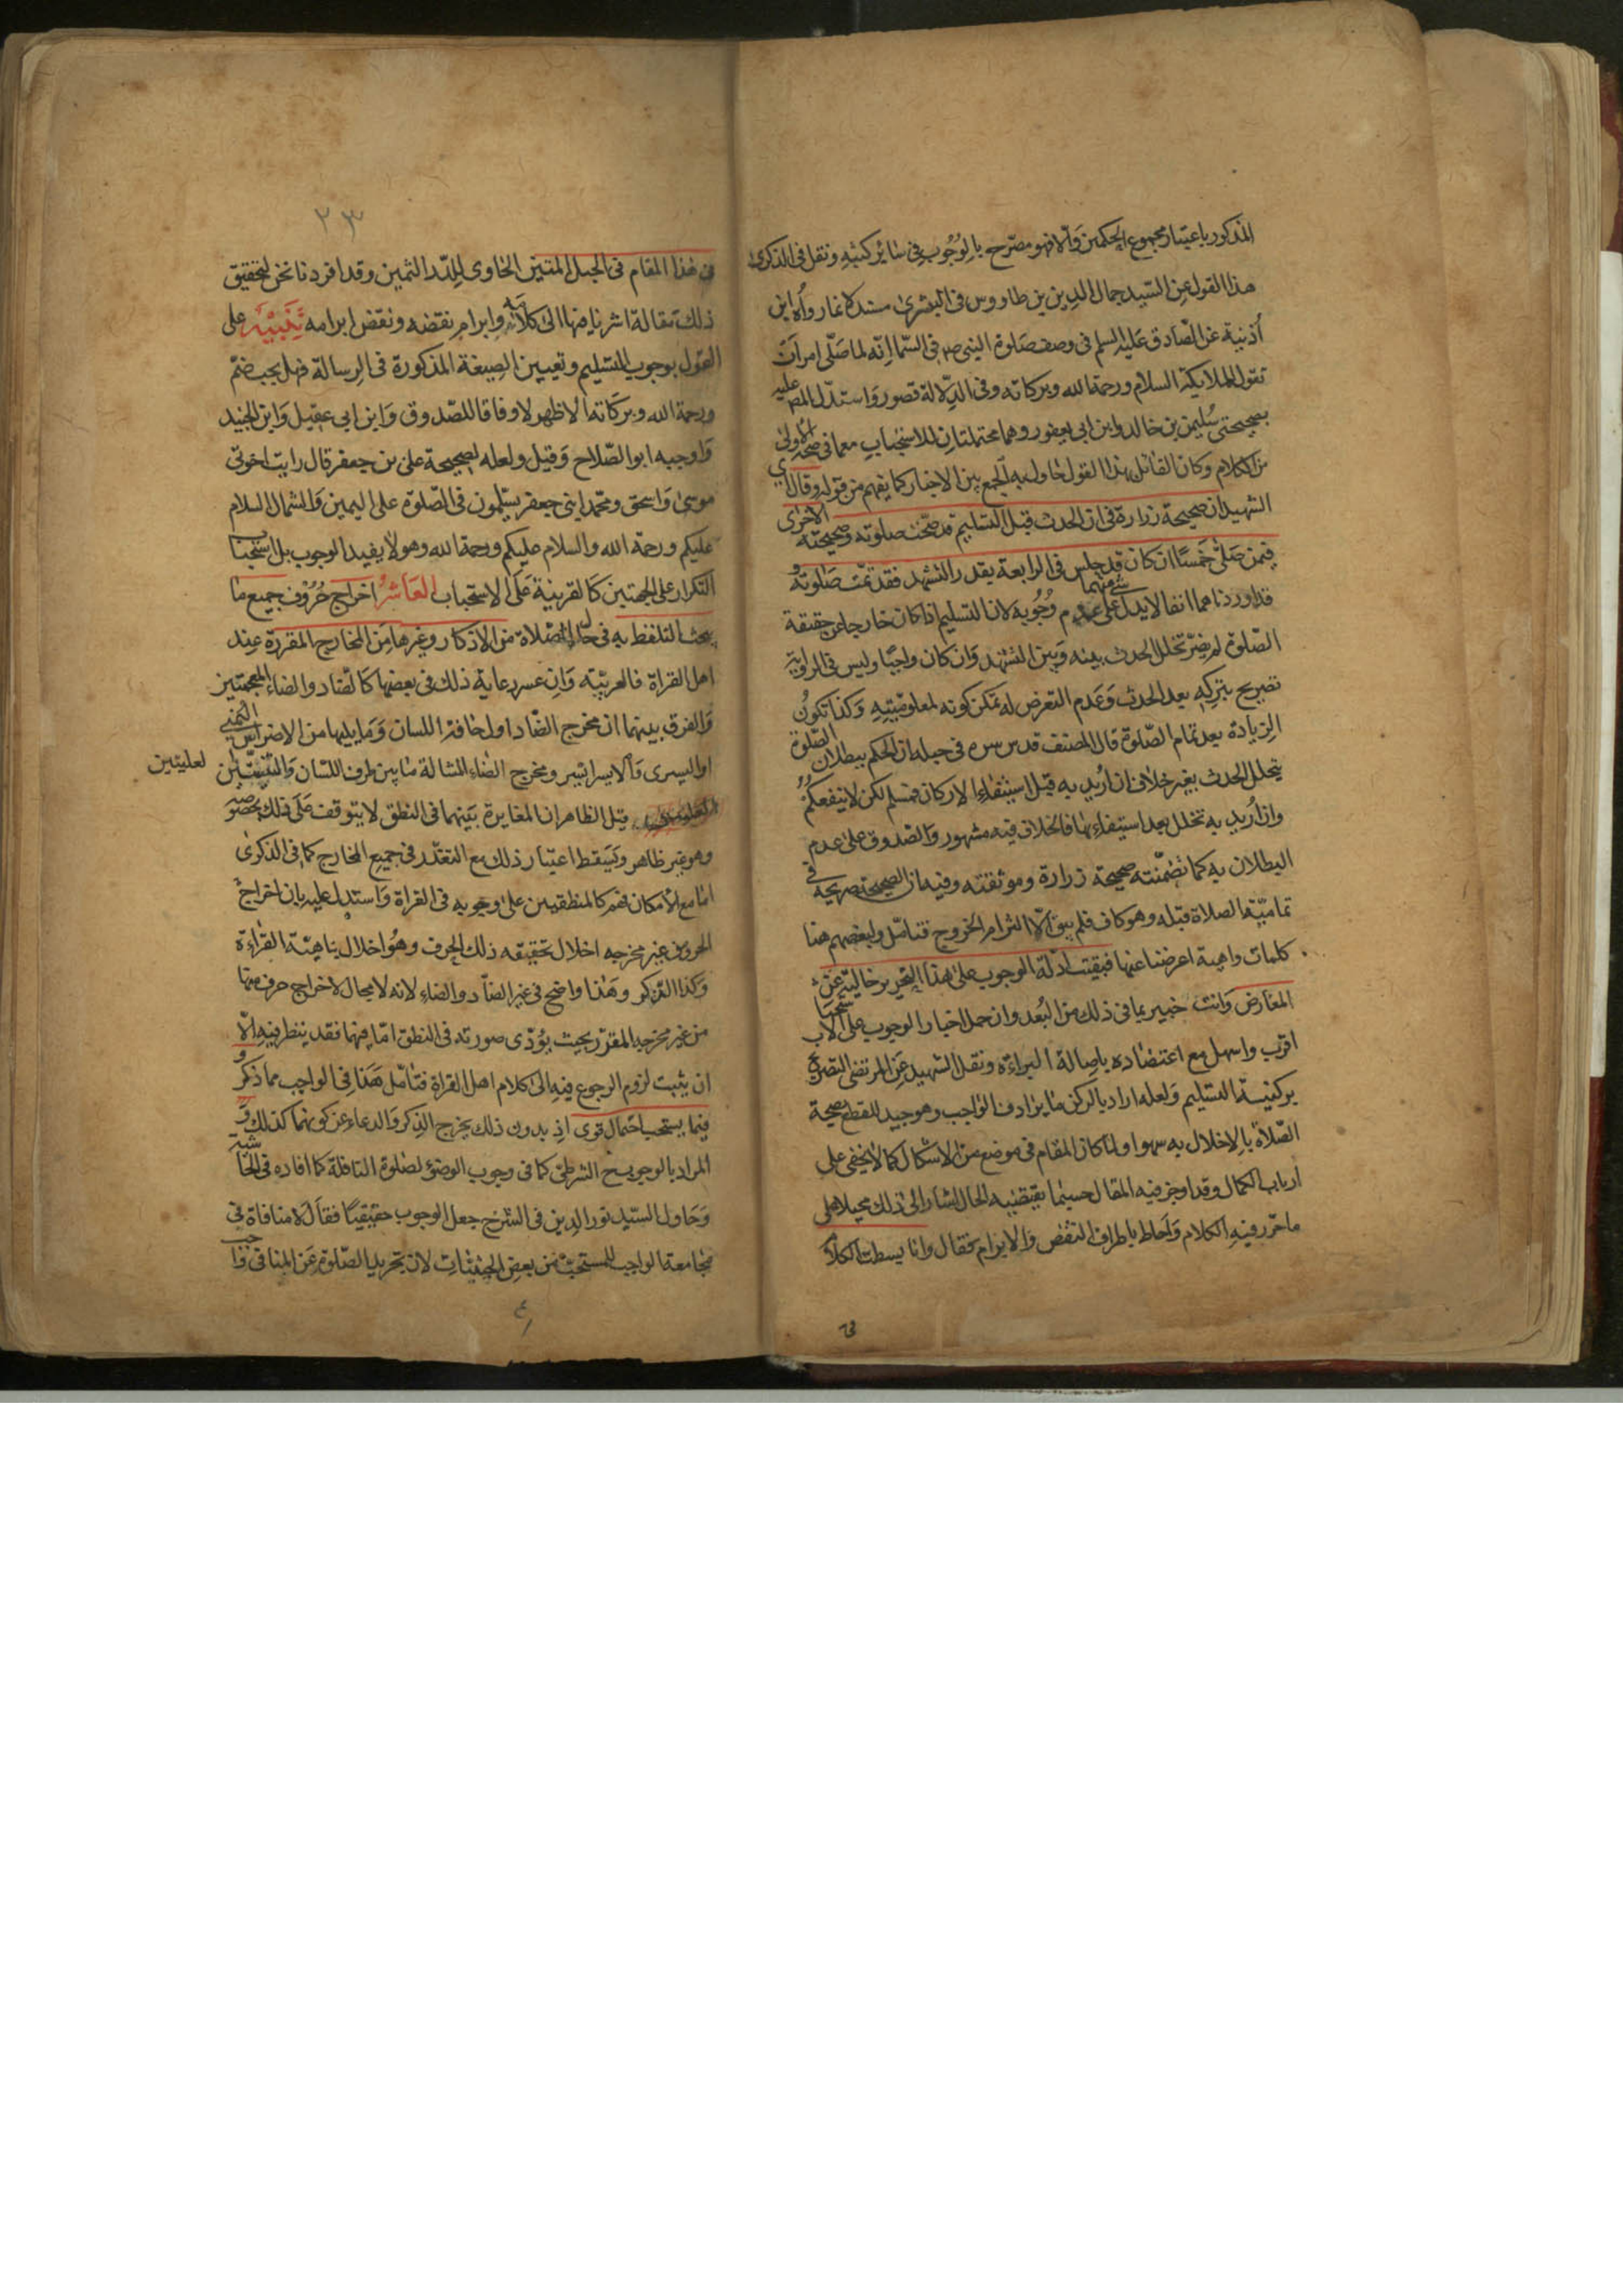 المذكور باعتبار مجموع الحكمين والا فهو مصرح بالوجوب في سائر كتبه ونقل في الذكرى
هذا القول عن السيد جمال الدين بن طاووس في البشرى مستدلا بما رواه ابن
أذنية عن الصادق عليه السلم في وصف صلوة النبي صم في السما انه لما صلى امر ان
تقول للملايكة السلام ورحمة الله وبركاته وفي الدلالة قصور واستدل المص عليه
بصحيحتي سليمن بن خالد وابن ابي يعفور وهما محتملتان للاستحباب مع ما في صحة الأولى
من الكلام وكان القائل بهذا القول حاول به الجمع بين الاخبار كما يفهم من قوله وقال
الشهيد ان صحيحة زرارة في ان الحدث قبل التسليم قد صحت صلوته وصحيحته الاخرى
فيمن صلى خمسا ان كان قد جلس في الرابعة بقدر التشهد فقد تمت صلوته و
قد اوردناهما انفا لا يدل شئ منهما على عدم وجوبه لان التسليم اذا كان خارجا عن حقيقة
الصلوة لم يضر تخلل الحدث بينه وبين التشهد وان كان واجبا وليس في الرواية
تصريح بتركه بعد الحدث وعدم التعرض له يمكن كونه لمعلوميته وكذا تكون
الزيادة بعد تمام الصلوة قال المصنف قدس سره في حبله ان الحكم ببطلان الصلوة
بتخلل الحدث بغير خلاف ان أريد به قبل استيفاء الاركان فمسلم لكن لا ينفعكم
وان أريد به تخلل بعد استيفاءها فالخلاف فيه مشهور والصدوق على عدم
البطلان به كما تضمنته صحيحة زرارة وموثقته وفيه ان الصحيحة صريحة في
تمامية الصلاة قبله وهو كاف فلم يبق الا التزام الخروج فتامل ولبعضهم هنا
كلمات واهية اعرضنا عنها فبقيت ادلة الوجوب على هذا التحرير خالية عن
المعارض وانت خبير بما في ذلك من البعد وان حمل اخبار الوجوب على الاستحباب
اقرب واسهل مع اعتضاده باصالة البراءة ونقل الشهيد عن المرتضى التصريح
بركنية التسليم ولعله اراد بالركن ما يرادف الواجب وهو جيد للقطع بصحة
الصلاة بالاخلال به سهوا ولما كان المقام في موضع من الاشكال كما لا يخفى على
ارباب الكمال وقد اوجز فيه المقال حسبما يقتضيه الحال اشار الى ذلك محيلا على
ما حرر فيه الكلام واحاط باطراف النقض والابرام فقال وانا بسطت الكلام
في
٢٣
في هذا المقام في الحبل المتين الحاوي للدر الثمين وقد افردنا نحن لتحقيق
ذلك مقالة اشرنا فيها الى كلامه وابرام نقضه ونقض ابرامه تنبيه على
القول بوجوب التسليم وتعيين الصيغة المذكورة في الرسالة فهل يجب ضم
ورحمة الله وبركاته الاظهر لا وفاقا للصدوق وابن ابي عقيل وابن الجنيد
واوجبه ابو الصلاح وقيل ولعله لصحيحة علي بن جعفر قال رايت اخوتي
موسى واسحق ومحمد ابني جعفر يسلمون في الصلوة على اليمين والشمال السلام
عليكم ورحمة الله والسلام عليكم ورحمة الله وهو لا يفيد الوجوب بل استحباب
التكرار على الجهتين كالقرينة على الاستحباب العاشر اخراج حروف جميع ما
يجب التلفظ به في حال الصلاة من الاذكار وغيرها من المخارج المقررة عند
اهل القراة فالعربية وان عسر رعاية ذلك في بعضها كالضاد والظاء المعجمتين
والفرق بينهما ان مخرج الضاد اول حافة اللسان وما يليها من الاضراس اليمنى
او اليسرى والايسر ايسر ومخرج الظاء المشالة ما بين طرف اللسان والثنيتين
لعليتين
قيل الظاهر ان المغايرة بينهما في النطق لا يتوقف على ذلك بخصوصه
وهو غير ظاهر ويسقط اعتبار ذلك مع التعذر في جميع المخارج كما في الذكرى
اما مع الامكان فهم كالمنطقيين على وجوبه في القراة واستدل عليه بان اخراج
الحروف من غير مخرجه اخلال بحقيقه ذلك الحرف وهو اخلال بماهية القراءة
وكذا الذكر وهذا واضح في غير الضاد والظاء لانه لا مجال لاخراج حرف منها
من غير مخرجه المقرر بحيث يؤدى صورته في النطق اما فيهما فقد ينظر فيه الا
ان يثبت لزوم الرجوع فيه الى كلام اهل القراة فتامل هذا في الواجب مما ذكر و
فيما يستحب احتمال قوى اذ بدون ذلك يخرج الذكر والدعاء عن كونهما كذلك و
المراد بالوجوب ح الشرطي كما في وجوب الوضوء لصلوة النافلة كما افاده في الحاشية
وحاول السيد نور الدين في الشرح جعل الوجوب حقيقيا فقال لا منافاة في
مجامعة الواجب للمستحب من بعض الحيثيات لان تجريد الصلوة عن المنافي واجب